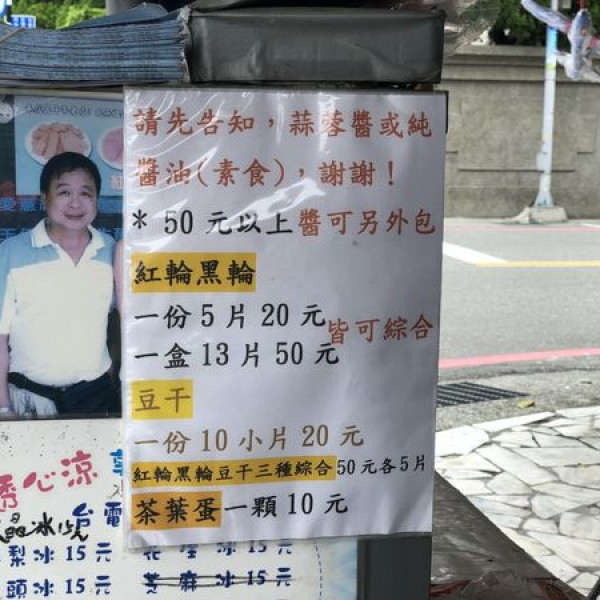 請先告知，蒜蓉醬或純
醬油(素食)，謝謝！
* 50 元以上醬可另外包
紅輪黑輪
一份 5 片 20 元
皆可綜合
一盒 13 片 50 元
豆干
一份 10 小片 20 元
紅輪黑輪豆干三種綜合50元各5片
茶葉蛋一顆 10 元
透心涼
冰15元
梨冰 15 元
頭冰 15 元
芝麻冰 15 元